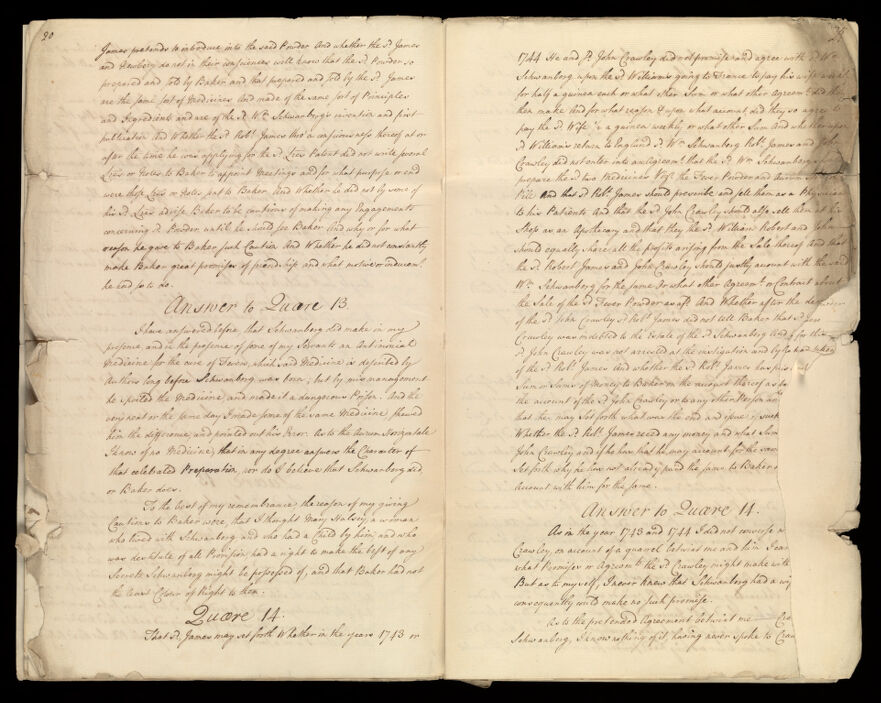 20
James pretends to introduce into the said Powder And whether the Sd. James
and Newbery do not in their consciences well know that the Sd. Powder, so
prepared and sold by Baker and that prepared and sold by the Sd. James
are the same sort of Medicines And made of the same sort of Principles
and Ingredients and are of the Sd. Wm. Schwanberg's invention and first
publication And Whether the Sd. Robt. James thro' a consciousness thereof at or
after the time he was applying for the Sd. Lres Patent did not write several
Lres or Notes to Baker to appoint Meetings and for what purpose or end
were those Lres or Notes sent to Baker And Whether he did not by some of
his Sd. Lres advise Baker to be cautious of making any Engagements
concerning Sd. Powder until he should see Baker And why or for what
reason he gave to Baker such Caution And Whether he did not constantly
make Baker great promises of friendship and what motive or inducemt.
he had so to do.
Answer to Quære 13.
I have answered before, that Schwanberg did make in my
presence, and in the presence of some of my Servants an Antimonial
Medicine for the cure of Fevers, which said Medicine is described by
Authors long before Schwanberg was born; but by mismanagement
he spoiled the Medicine and made it a dangerous Poison. And the
very next or the same day I made some of the same Medicine, shewed
him the difference, and pointed out his Error. As to the Aurum Horizontale
I know of no Medicine, that in any degree answers the Character of
that celebrated Preparation, nor do I believe that Schwanberg did,
or Baker does.
To the best of my remembrance, the reason of my giving
Cautions to Baker were, that I thought Mary Halsey, a woman
who lived with Schwanberg and who had a Child by him, and who
was destitute of all Provision, had a right to make the best of any
Secrets Schwanberg might be possessed of, and that Baker had not
the least Colour of Right to them.
Quære 14.
That Sd. James may set forth Whether in the years 1743 or
1744 He and Sd. John Crawley did not promise and agree with Sd. Wm.
Schwanberg upon the Sd. William's going to France to pay his wife
for half a guinea each or what other Sum or what other Agreemt. did they
then make And for what reason & upon what account did they so agree to
pay the Sd. Wife ½ a guinea weekly or what other Sum And whether upon
Sd. William's return to England Sd. Wm. Schwanberg Robt. James and John
Crawley did not enter into an Agreemt. that the Sd. Wm. Schwanberg should
prepare the Sd. two Medicines Vizt. the Fever Powder and Aurum
Pill And that Sd. Robt. James should prescribe and sell them as a Physician
to his Patients And that the Sd. John Crawley should also sell them at his
Shop as an Apothecary and that they the Sd. William Robert and John
should equally share all the profits arising from the Sale thereof And that
the Sd. Robert James and John Crawley should justly account with the said
Wm. Schwanberg for the same Or what other Agreemt. or Contract about
the Sale of the Sd. Fever Powder as afd. And Whether after the decease
of the Sd. John Crawley Sd. Robt. James did not tell Baker that Sd. Jno.
Crawley was indebted to the Estate of the Sd. Schwanberg And if for this
Sd. John Crawley was not arrested at the instigation and by
of the Sd. Robt. James And whether the Sd. Robt. James has paid
Sum or Sums of Money to Baker on the account thereof as
the account of the Sd. John Crawley or to any other Person
that he may Set forth what was the end and issue of such
Whether the Sd. Robt. James reced any money and what Sum
John Crawley and if he has that he may account for the same
Set forth why he has not already paid the same to Baker
Account with him for the same.
Answer to Quære 14.
As in the year 1743 and 1744 I did not converse
Crawley, on account of a quarrel betwixt me and him I can
what Promises or Agreemts. the Sd. Crawley might make with
But as to myself, I never knew that Schwanberg had a wife
consequently could make no such promise.
As to the pretended Agreement betwixt me
Schwanberg, I know nothing of it, having never spoke to